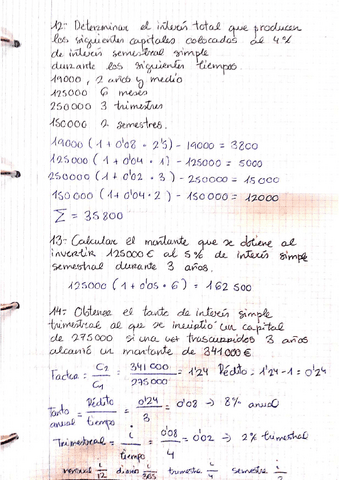 12.- Determinar el interés total que producen
los siguientes capitales colocados al 4%
de interés semestral simple
durante los siguientes tiempos.
19000, 2 años y medio
125000 6 meses
250000 3 trimestres
150000 2 semestres.
19000 (1 + 0'08 · 2'5) - 19000 = 3800
125000 (1 + 0'04 · 1) - 125000 = 5000
250000 (1 + 0'02 · 3) - 250000 = 15000
150000 (1 + 0'04 · 2) - 150000 = 12000
Σ = 35800
13.- Calcular el montante que se obtiene al
invertir 125000 € al 5% de interés simple
semestral durante 3 años.
125000 (1 + 0'05 · 6) = 162500
14.- Obtener el tanto de interés simple
trimestral al que se invirtió un capital
de 275000 si una vez transcurridos 3 años
alcanzó un montante de 341000 €
Factor = C2/C1 = 341000/275000 = 1'24 Rédito: 1'24 - 1 = 0'24
Tanto anual = Rédito/tiempo = 0'24/3 = 0'08 → 8% anual
Trimestral = i/tiempo = 0'08/4 = 0'02 → 2% trimestral
mensual i/12 diario i/365 trimestre i/4 semestre i/2